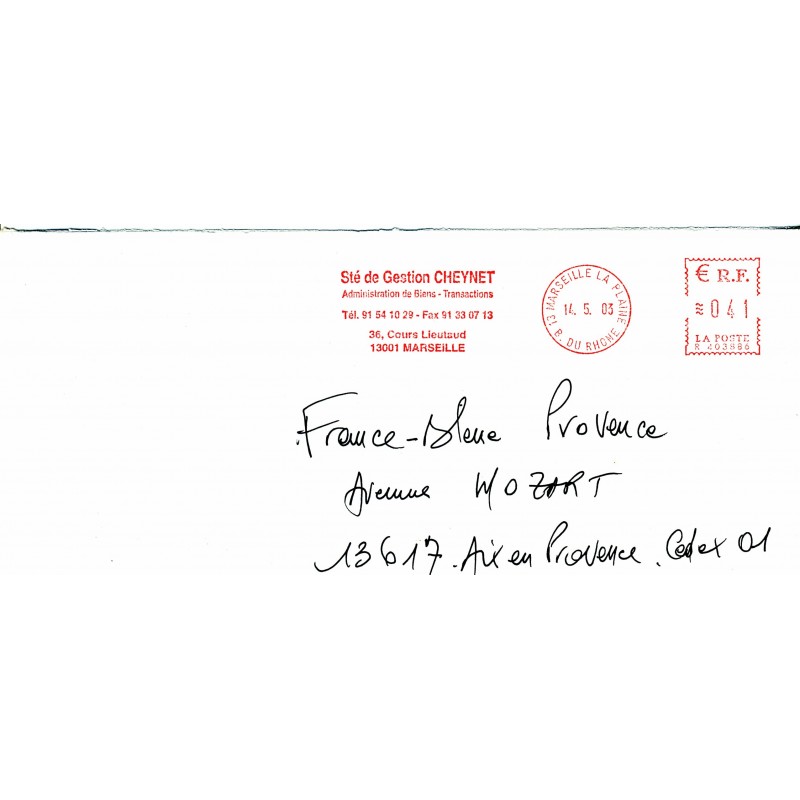 Sté de Gestion CHEYNET
Administration de Biens - Transactions
Tél. 91 54 10 29 - Fax 91 33 07 13
36, Cours Lieutaud
13001 MARSEILLE
13 MARSEILLE LA PLAINE
14. 5. 03
B. DU RHONE
€ R.F.
≈041
LA POSTE
R 403886
France-Bleue Provence
Avenue MOZART
13617. Aix en Provence. Cedex 01